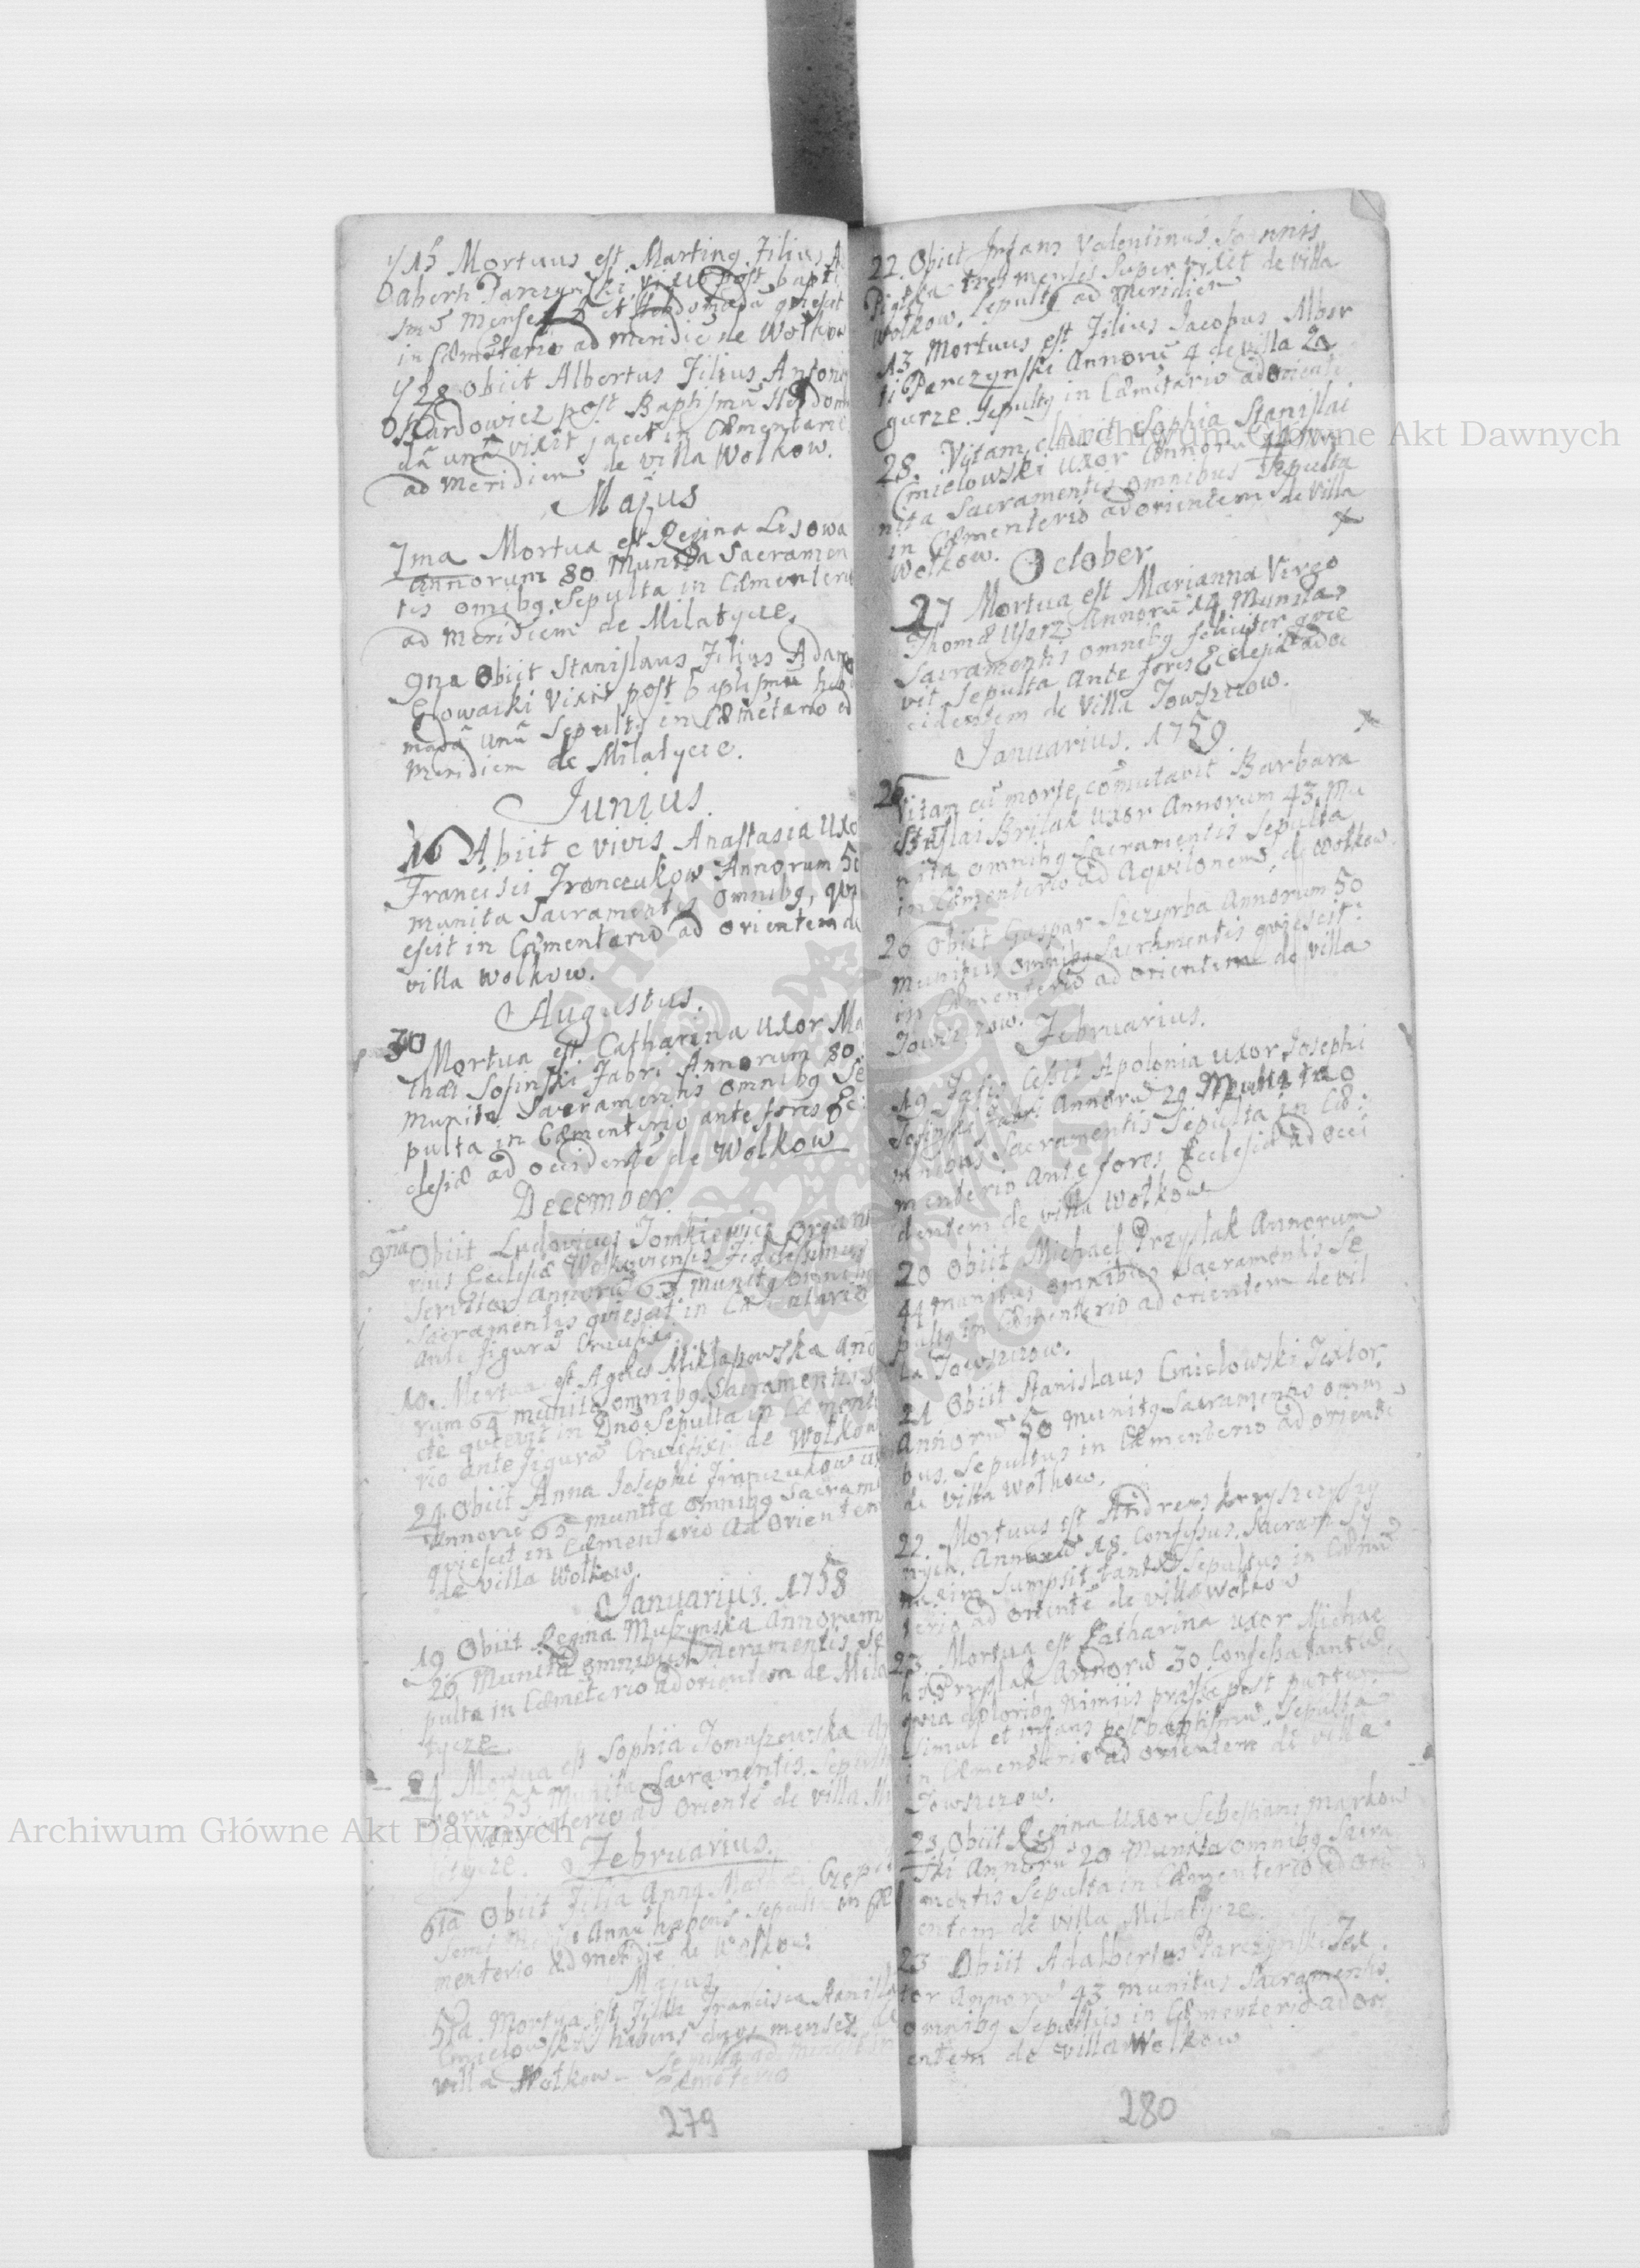 y 15 Mortuus est Marting Filius A
Dalberti Parczynski vixit post bapti
smũ menses 3 et Hebdomadã quiescit
in Cœmeterio ad meridiẽ de Wolkow
y 28 Obiit Albertus Filius Antonij
post Baptismũ Hebdoma
dã unã vixit jacet in Cœmenterio
ad Meridiem de villa Wolkow.
Majus
7ma Mortua est Regina Lisowa
annorum 80 Munita Sacramen
tis omnibg, Sepulta in Cœmenterio
ad Meridiem de Milatycze.
9na Obiit Stanislaus Filius Adami
Glowacki Vixit post baptismũ hebdo
madã unã Sepultg in Cœmetario ad
Meridiem de Milatycze.
Junius.
16 Abiit e vivis Anastasia Uxor
Francisci Franczukow Annorum 50
munita Sacramentis Omnibg, qui
escit in Cœmentario ad orientem de
villa Wolkow.
Augustus.
30 Mortua est Catharina Uxor Ma
thæi Sosinski Fabri Annorum 80
Munita Sacramentis omnibg Se
pulta in Cœmenterio ante fores Ec
clesiæ ad occidentẽ de Wolkow
December.
9na Obiit Ludovicus Tomkiewicz Organa
rius Ecclesiæ Wolkoviensis Fidelissimus
Servitor Annorũ 63 munitg omnibg
Sacramentis quiescit in Cœmetario
Ante figurã Crucifixi.
10. Mortua est Agnes Mikłaszowska Año
rum 64 munita omnibg Sacramentis
quievit in Dño Sepulta in Cœmente
rio ante figurã Crucifixi de Wolkow
24. Obiit Anna Josephi Franczukow ux
Annorũ 65 munita omnibg Sacram
quiescit in Cœmenterio ad Orientem
de villa Wolkow.
Januarius. 1758
19 Obiit Regina Muszynska Annorum
26 Munita omnibus Sacramentis Se
pulta in Cœmeterio ad orientem de Mila
tycze.
21 Mortua est Sophia Tomaszewska An
norũ 55 Munita Sacramentis. Sepulta
in Cœmenterio ad Orientẽ de villa Mi
latycze.
Februarius.
6ta Obiit Filia Anna
Annũ habens Sepulta in Cœ
menterio ad meridiẽ de Wolkow.
Majus
5ta Mortua est Filia Francisca Stanislai
Cmielowski habens duos menses de
villa Wolkow Sepulta ad
Cœmeterio
279
22. Obiit Infans Valentinus Joannis
tres menses Supervixit de villa
Wolkow. Sepultg ad Meridiem
13 Mortuus est Filius Jacobus Alber
ti Parczynski Annorũ 4 de villa Za
gurze. Sepultg in Cœmetario ad Orientẽ
28. Vitam Sophia Stanislai
Cmielowski uxor Annorũ 44 mu
nita Sacramentis omnibus Sepulta
in Cœmenterio ad orientem de Villa
Wolkow.
October
27 Mortua est Marianna Virgo
Thomæ Annorũ 14 Munita
Sacramentis omnibg feliciter quie
vit Sepulta Ante fores Ecclesiæ ad oc
cidentem de Villa Towszczow.
Januarius. 1759
Vitam cũ morte com̃utavit Barbara
Stanislai Brilak uxor Annorum 43, Mu
nita omnibg Sacramentis Sepulta
in Cœmenterio ad Aquilonem, de Wolkow.
26 Obiit Gaspar Szczurba Annorum 50
munitus omnibg Sacramentis quiescit
in Cœmenterio ad orientem de villa
Towszczow.
Februarius.
19 Fatis cessit Apolonia uxor Josephi
Sosinski Fabri Annorũ 29 Munita o
mnibus Sacramentis Sepulta in Cœ
menterio Ante fores Ecclesiæ ad occi
dentem de villa Wolkow
20 Obiit Michael Przyslak Annorum
44 munitus omnibus Sacramentis Se
pultg in Cœmenterio ad orientem de vil
la Towszczow.
21 Obiit Stanislaus Cmielowski Textor,
Annorũ 50 Munitg Sacramentis omni
bus. Sepultus in Cœmenterio ad orientẽ
de villa Wolkow.
22. Mortuus est Andreas
Annorũ 18. Confessus. Sacram
Sumpsit tantũ Sepultus in Cœme
terio ad orientẽ de villa Wolkow
23. Mortua est Catharina uxor Michae
lis Przyslak Annorũ 30. Confessa tantũ
quia doloribg nimiis pressa post partum
Simul et infans post baptismũ. Sepulta
in Cœmenterio ad orientem de villa
Towszczow.
23. Obiit Regina Uxor Sebastiani Markow
ski Annorũ 20 Munita omnibg Sacra
mentis Sepulta in Cœmenterio ad ori
entem de villa Milatycze.
23 Obiit Adalbertus Parczynski Tex
tor Annorũ 43 munitus Sacramentis
omnibg Sepultus in Cœmenterio ad ori
entem de villa Wolkow
280
Archiwum Główne Akt Dawnych
Archiwum Główne Akt Dawnych